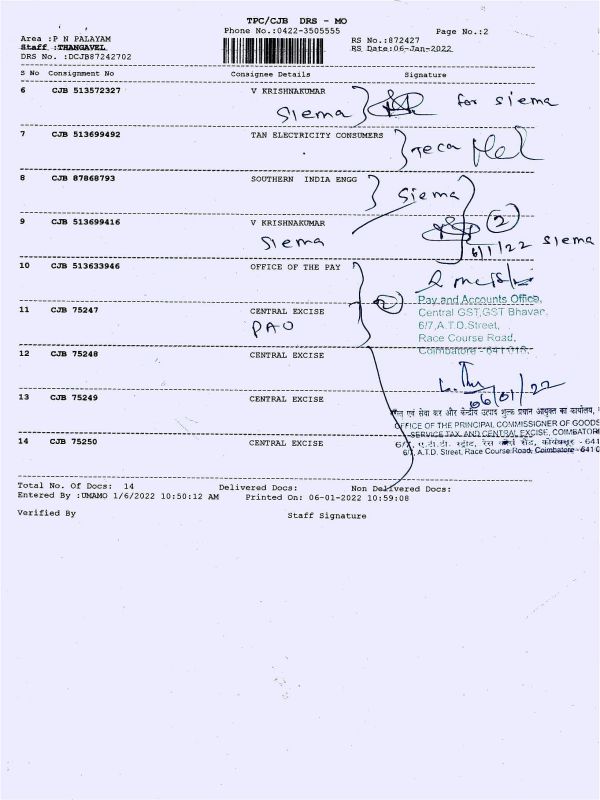 TPC/CJB DRS - MO
Phone No.:0422-3505555 Page No.:2
Area :P N PALAYAM RS No.:872427
Staff :THANGAVEL RS Date:06-Jan-2022
DRS No. :DCJB87242702
S No Consignment No Consignee Details Signature
6 CJB 513572327 V KRISHNAKUMAR
Siema for siema
7 CJB 513699492 TAN ELECTRICITY CONSUMERS
Teca
8 CJB 87868793 SOUTHERN INDIA ENGG
Siema
9 CJB 513699416 V KRISHNAKUMAR 2
Siema 6/1/22 siema
10 CJB 513633946 OFFICE OF THE PAY
2 Pay and Accounts Office,
11 CJB 75247 CENTRAL EXCISE Central GST,GST Bhavan,
PAO 6/7,A.T.D.Street,
Race Course Road,
Coimbatore - 641 018.
12 CJB 75248 CENTRAL EXCISE
06/01/22
13 CJB 75249 CENTRAL EXCISE
एवं सेवा कर और केन्द्रीय उत्पाद शुल्क प्रधान आयुक्त का कार्यालय,
OFFICE OF THE PRINCIPAL COMMISSIONER OF GOODS
SERVICE TAX AND CENTRAL EXCISE, COIMBATORE
14 CJB 75250 CENTRAL EXCISE
6/7, ए.टी.डी. स्ट्रीट, रेस कोर्स रोड, कोयंबत्तूर - 641
6/7, A.T.D. Street, Race Course Road, Coimbatore - 641 0
Total No. Of Docs: 14 Delivered Docs: Non Delivered Docs:
Entered By :UMAMO 1/6/2022 10:50:12 AM Printed On: 06-01-2022 10:59:08
Verified By Staff Signature